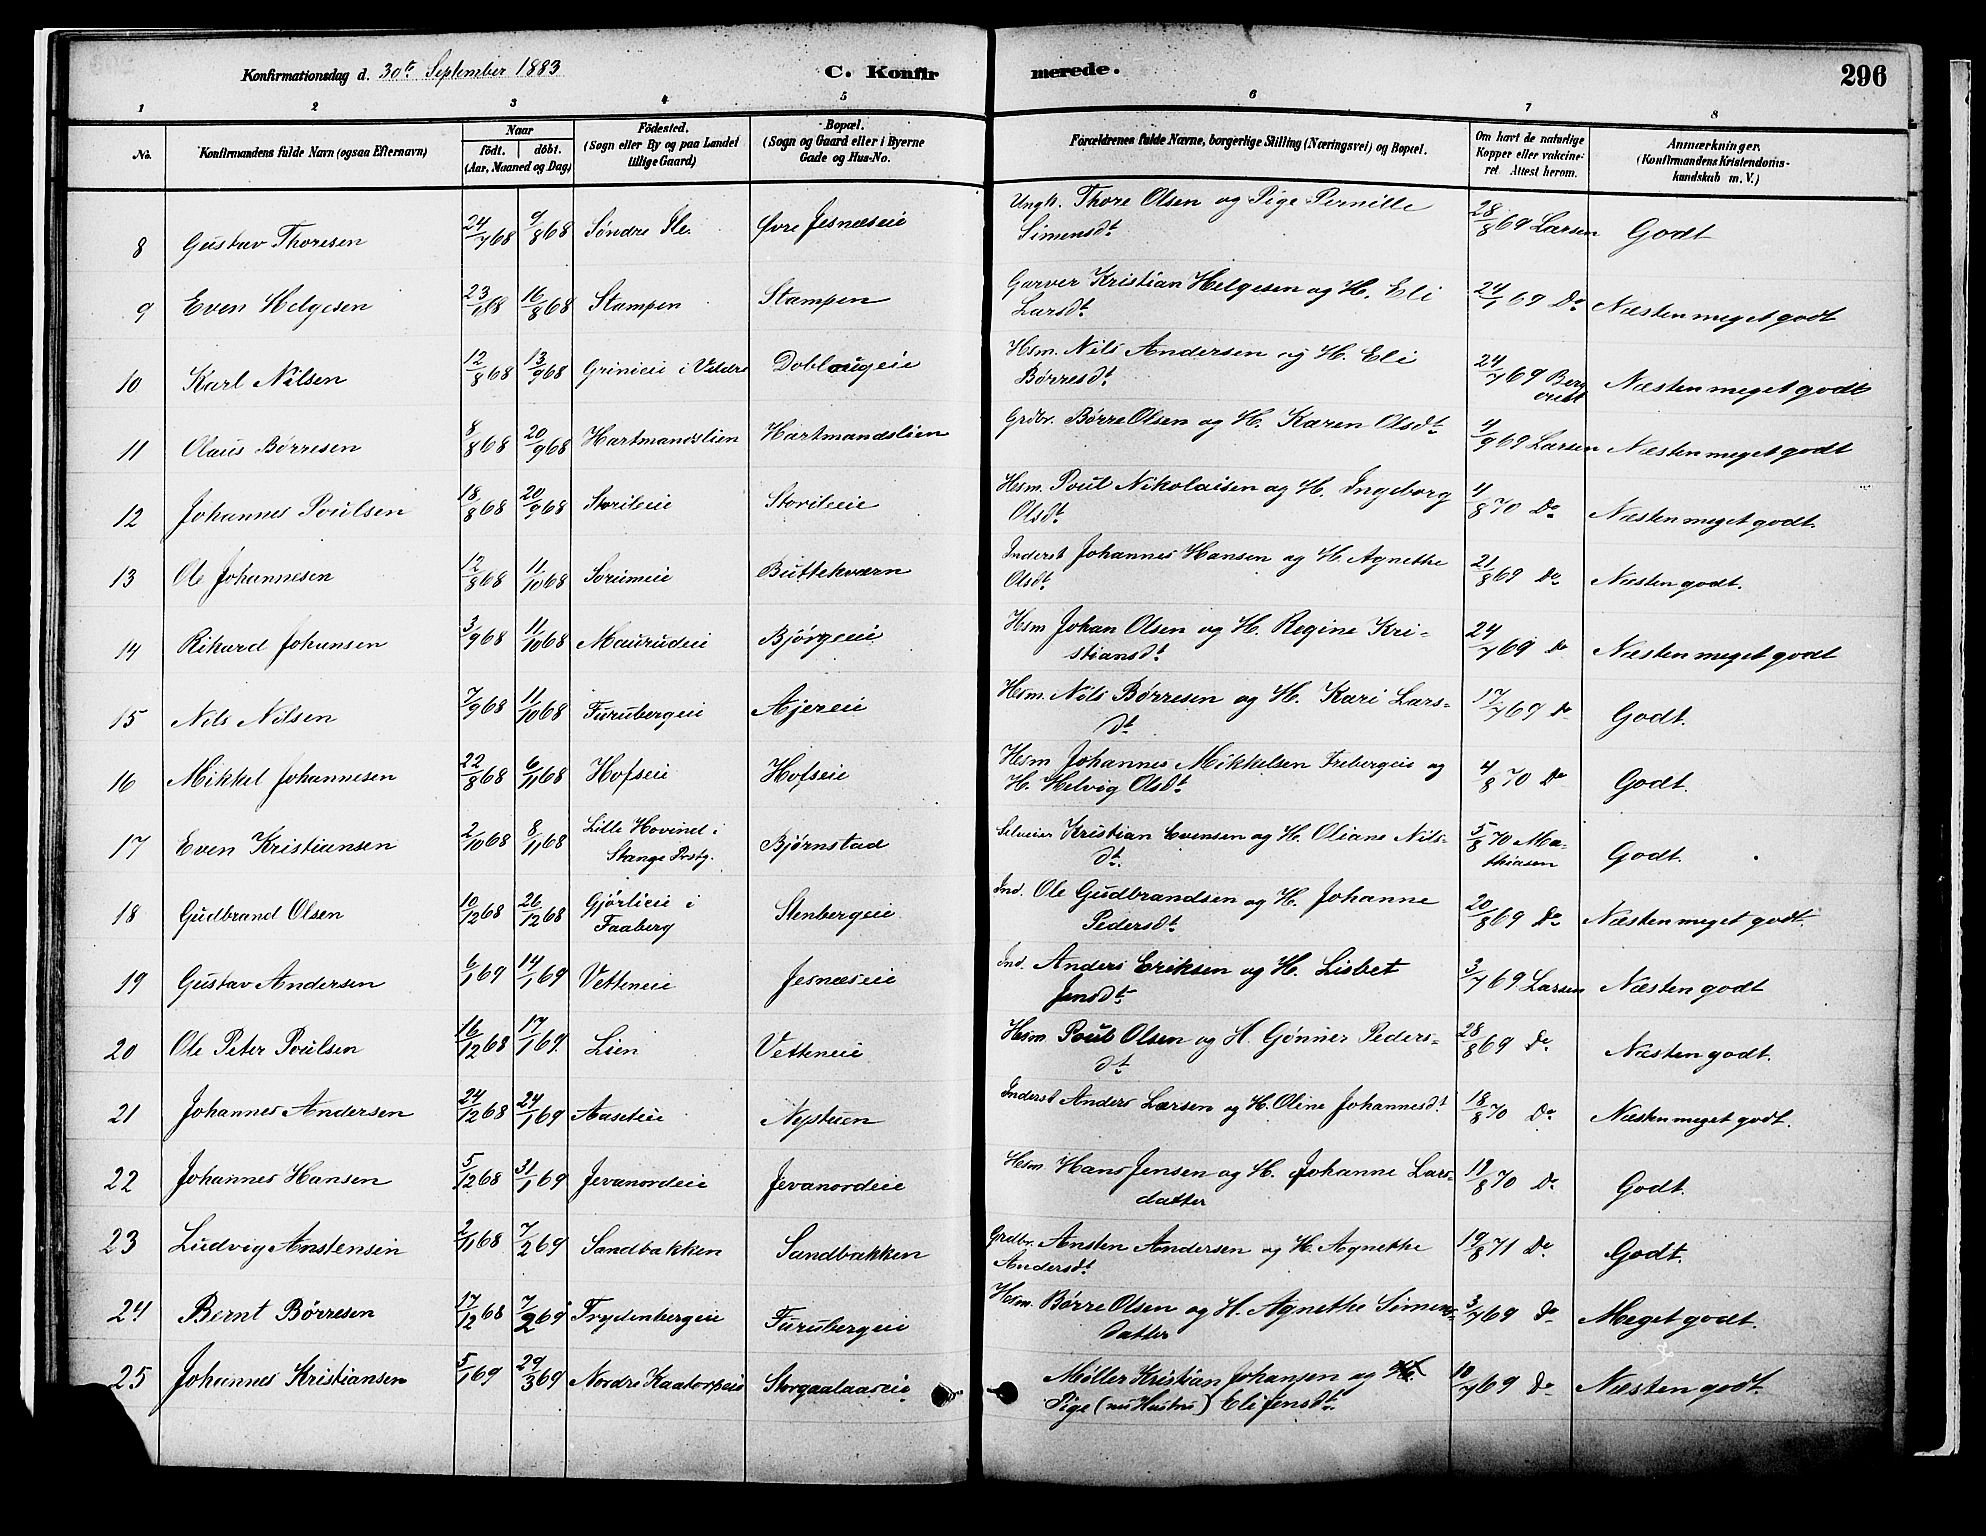 Konfirmationsdag d. 30te September 1883 C. Konfirmerede. 296
1 2 3 4 5 6 7 8
No. Konfirmandens fulde Navn (ogsaa Efternavn) Naar födt. döbt. (Aar, Maaned og Dag) Födested. (Sogn eller By og paa Landet tillige Gaard) Bopæl. (Sogn og Gaard eller i Byerne Gade og Hus-No. Forældrenes fulde Navne, borgerlige Stilling (Næringsvei) og Bopæl. Om havt de naturlige Kopper eller vakcineret Attest herom. Anmærkninger. (Konfirmandens Kristendomskundskab m.V.)
8 Gustav Thoresen 24/7 68 9/8 68 Søndre Sle. Øvre Jesnæseie Ungk. Thore Olsen og Pige Pernille Simensdt 28/8 69 Larsen Godt
9 Even Helgesen 16/8 68 Stampen Stampen Garver Kristian Helgesen og H. Eli Larsdt 24/1 69 Do Næsten meget godt
10 Karl Nilsen 12/8 68 13/9 68 Grinieie i Veldre Doblougeie Hsm. Nils Andersen og H. Eli Børresdt 24/7 69 Næsten meget godt
11 Olaus Børresen 8/8 68 20/9 68 Hartmandslien Hartmandslien Grdbr. Børre Olsen og H. Karen Olsdt 4/9 69 Larsen Næsten meget godt
12 Johannes Poulsen 18/8 68 20/9 68 Storileie Storileie Hsm. Poul Nikolaisen og H. Ingeborg Olsdt 4/8 70 Do Næsten meget godt.
13 Ole Johannesen 12/8 68 11/10 68 Sorumeie Buttekværn Inderst Johannes Hansen og H. Agnethe Olsdt 21/8 69 Do Næsten godt.
14 Rikard Johansen 3/9 68 11/10 68 Maurudeie Bjørgeeie Hsm Johan Olsen og H. Regine Kristiansdt 24/7 69 Do Næsten meget godt
15 Nils Nilsen 7/9 68 11/10 68 Furubergeie Ajereie Hsm. Nils Børresen og H. Kari Larsdt 17/7 69 Do Godt.
16 Mikkel Johannesen 22/8 68 6/11 68 Hofseie Hofseie Hsm Johannes Mikkelsen Frebergeie og H. Helvig Olsdt 4/8 70 Do Godt.
17 Even Kristiansen 2/10 68 8/11 68 Lille Hovind i Stange Prstg. Bjørnstad Selveier Kristian Evensen og H. Oliane Nilsdt. 5/8 70 Mathiesen Godt.
18 Gudbrand Olsen 10/12 68 26/12 68 Gjørlieie i Faaberg Stenbergeie Ind. Ole Gudbrandsen og H. Johanne Pedersdt 20/8 69 Do Næsten meget godt.
19 Gustav Andersen 6/1 69 14/1 69 Vetteneie Jesnæseie Ind. Anders Eriksen og H. Lisbet Jensdt 3/7 69 Larsen Næsten godt
20 Ole Peter Poulsen 16/12 68 17/1 69. Lien Vetteneie Hsm Poul Olsen og H. Gønner Pedersdt 28/8 69 Do Næsten godt.
21 Johannes Andersen 24/12 68 24/1 69 Aaseteie Nystuen Inderst Anders Larsen og H. Oline Johannesdt 18/8 70 Do Næsten meget godt.
22 Johannes Hansen 5/12 68 31/1 69 Jevanordeie Jevanordeie Hsm Hans Jensen og H. Johanne Larsdatter 19/8 70 Do Godt.
23 Ludvig Anstensen 2/11 68 7/2 69 Sandbakken Sandbakken Grdbr. Ansten Andersen og H. Agnethe Andersdt 19/8 71 Do Godt.
24 Bernt Børresen 17/12 68 7/2 69 Frydenbergeie Furubergeie Hsm. Børre Olsen og H. Agnethe Simensdatter 3/7 69 Do Meget godt.
25 Johannes Kristiansen 5/1 69 29/3 69 Nordre Kaatorpeie Storgaalaaseie Møller Kristian Johansen og Pige (nu Hustru) Eli Jensdt. 10/7 69 Do Næsten godt.